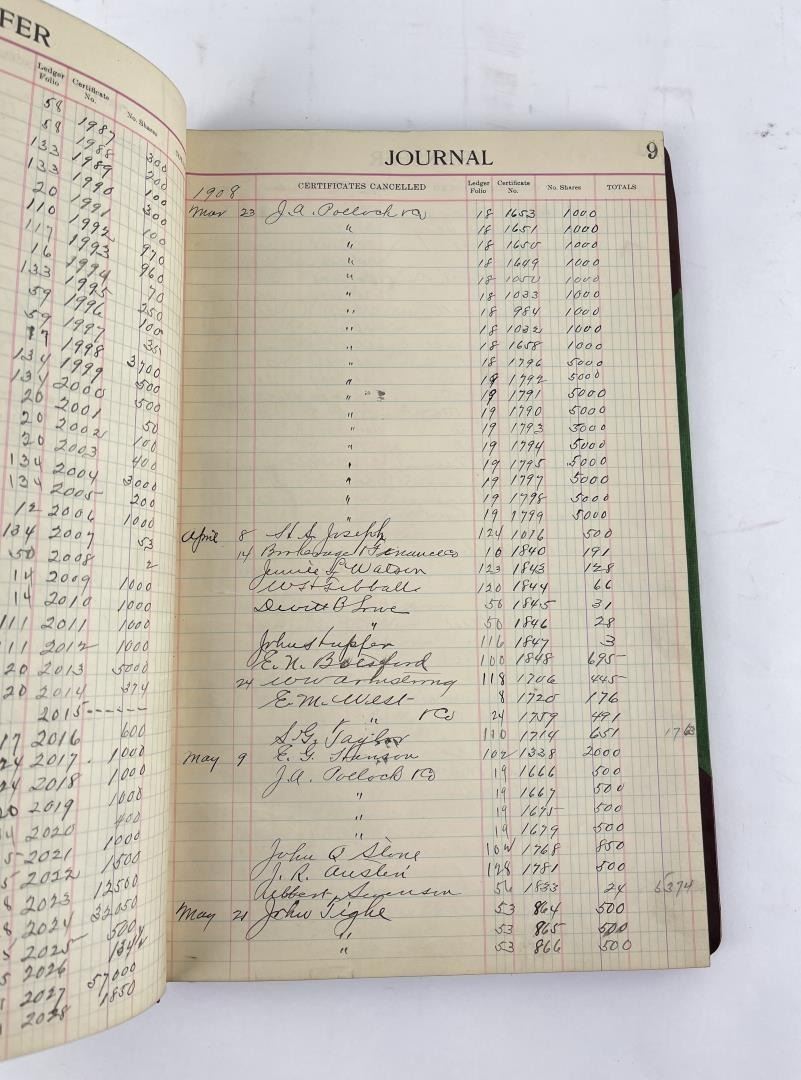 FER
Ledger Folio Certificate No. No. Shares
58 1987 300
58 1988 200
133 1989 100
133 1990 300
20 1991 100
110 1992 970
117 1993 960
16 1994 70
133 1995 250
59 1996 100
59 1997 35
17 1998 3700
134 1999 500
134 2000 500
20 2001 50
20 2002 100
20 2003 400
134 2004 3000
134 2005 200
12 2006 1000
134 2007 53
50 2008 2
14 2009 1000
14 2010 1000
111 2011 1000
111 2012 1000
20 2013 5000
20 2014 374
2015
17 2016 600
24 2017 1000
24 2018 1000
20 2019 1000
2020 400
5 2021 1000
5 2022 1500
8 2023 12500
8 2024 32050
5 2025 500
5 2026 1342
2027 57000
2028 1850
JOURNAL 9
1908 CERTIFICATES CANCELLED Ledger Folio Certificate No. No. Shares TOTALS
Mar 23 J.A. Pollock & Co 18 1653 1000
" 18 1651 1000
" 18 1650 1000
" 18 1649 1000
" 18 1050 1000
" 18 1033 1000
" 18 984 1000
" 18 1032 1000
" 18 1658 1000
" 18 1796 5000
" 19 1792 5000
" 19 1791 5000
" 19 1790 5000
" 19 1793 5000
" 19 1794 5000
" 19 1795 5000
" 19 1797 5000
" 19 1798 5000
" 19 1799 5000
April 8 St. A. Joseph 124 1016 500
14 Brokerage & Finance Co 10 1840 191
Jennie L. Watson 123 1843 128
120 1844 66
Dewitt B. Lowe 50 1845 31
" 50 1846 28
John Lupfer 116 1847 3
E. N. Botsford 100 1848 695
24 W W Armstrong 118 1706 445
E. M. West 8 1720 176
" & Co 24 1759 491
S. G. Taylor 110 1714 651 1763
May 9 E. G. Hanson 102 1338 2000
J. A. Pollock & Co 19 1666 500
" 19 1667 500
" 19 1675 500
" 19 1679 500
John Q Stone 102 1768 850
J. R. Austin 128 1781 500
Albert Swenson 56 1833 24 5374
May 21 John Tighe 53 864 500
" 53 865 500
" 53 866 500